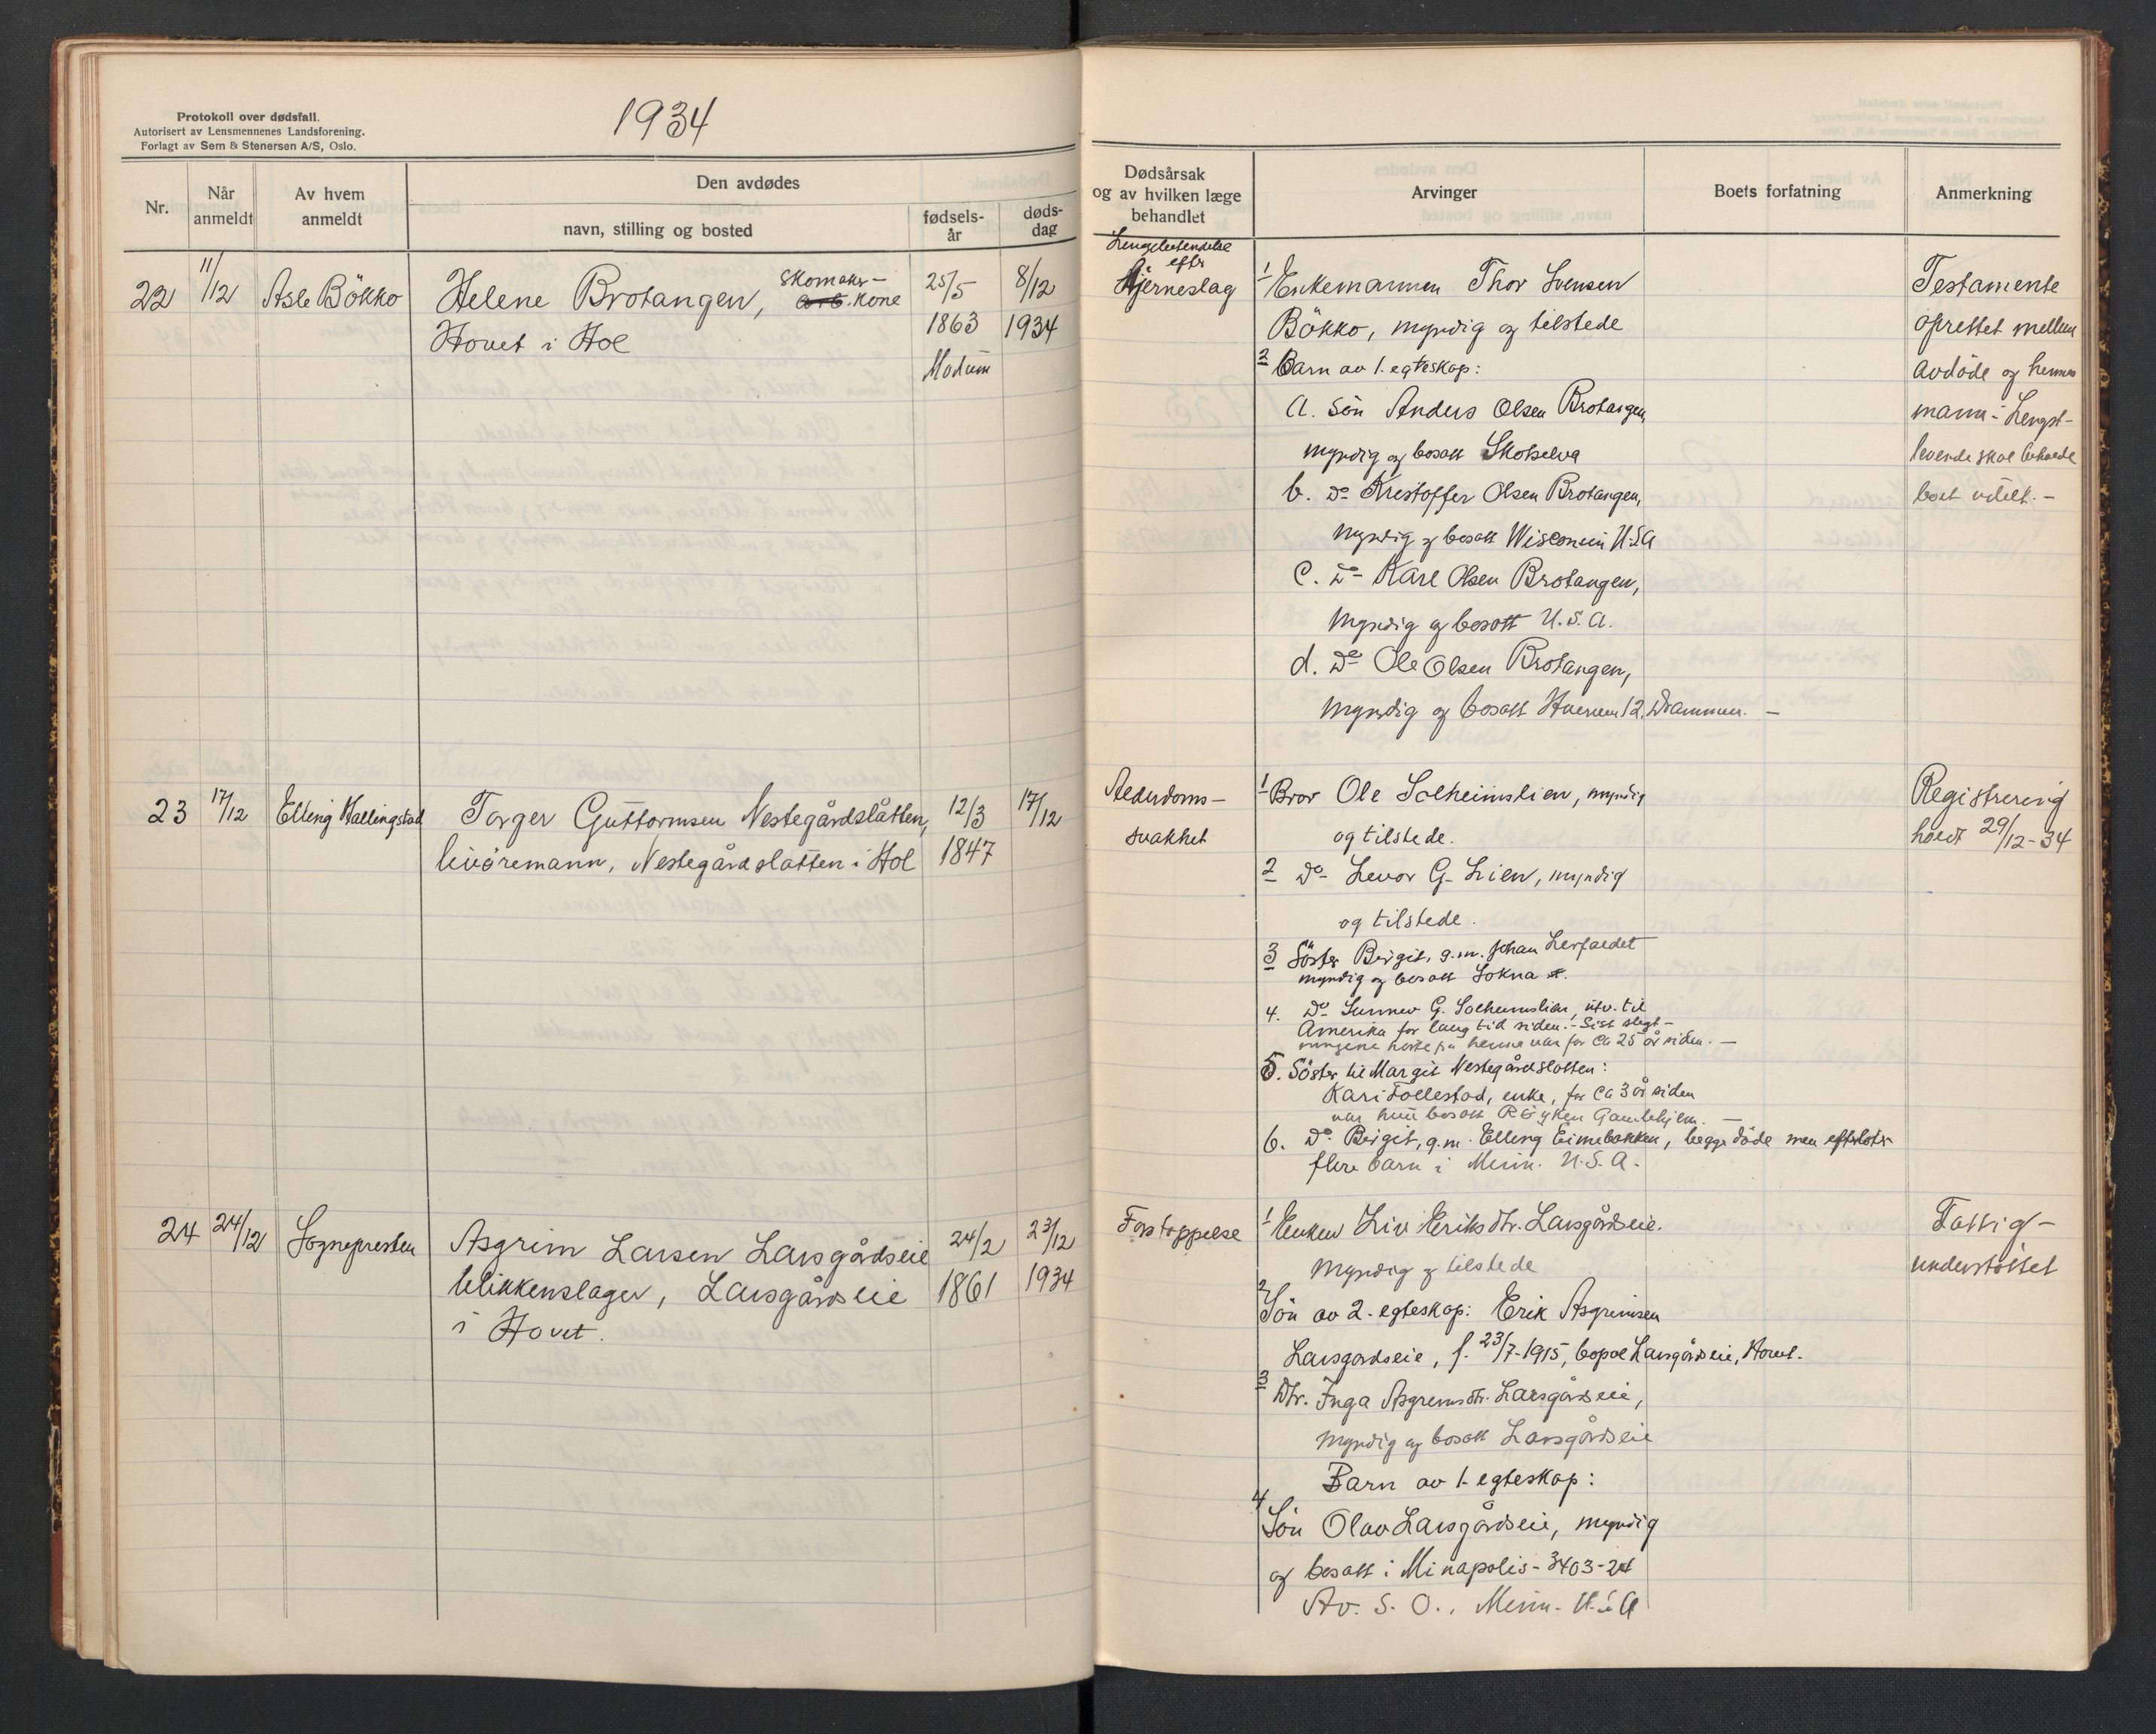 Protokoll over dødsfall.
Autorisert av Lensmennenes Landsforening.
Forlagt av Sem & Stenersen A/S, Oslo.
1934
Nr.
Når anmeldt
Av hvem anmeldt
Den avdødes
navn, stilling og bosted
fødsels-år
døds-dag
22 11/12 Asle Bökko Helene Brotangen, Skomaker- 25/5 8/12
arb. kone
Hovet i Hol 1863 1934
Modum
23 17/12 Elling Hallingstad Torger Guttormsen Nestegårdslåtten, 12/3 17/12
livöremann, Nestegårdslåtten i Hol 1847
24 24/12 Sognepresten Asgrim Larsen Larsgårdseie 24/2 23/12
blikkenslager, Larsgårdseie 1861 1934
i Hovet.
Dødsårsak
og av hvilken læge
behandlet
Arvinger
Boets forfatning
Anmerkning
efter
Hjerneslag
1 Enkemannen Thor Svensen
Bökko, myndig og tilstede
2 Barn av 1. egteskap:
a. Sön Anders Olsen Brotangen,
myndig og bosatt Skotselva
b. Do Kristoffer Olsen Brotangen,
myndig og bosatt Wisconsin U.S.A
c. Do Karl Olsen Brotangen,
myndig og bosatt U.S.A.
d. Do Ole Olsen Brotangen,
myndig og bosatt 12, Drammen. -
Testamente
oprettet mellem
avdöde og hennes
mann - Lengst-
levende skal beholde
boet udelt. -
Alderdoms-
svakhet
1 Bror Ole Solheimslien, myndig
og tilstede.
2 Do Levor G. Lien, myndig
og tilstede.
3 Söster Birgit, g.m. Johan Lerfaldet
myndig og bosatt Sokna
4. Do Sunnev G. Solheimslien, utv. til
Amerika for lang tid siden. - Sist slegt-
ningene hörte fra henne var for ca 25 år siden. -
5. Söster til Margit Nestegårdslotten:
Kari Follestad, enke, for ca 3 år siden
var hun bosatt Röyken Gamlehjem. -
6. Do Birgit, g.m. Elling Eimebakken, begge döde men efterlot
flere barn i Minn. U.S.A.
Registrering
holdt 29/12-34
Forstoppelse
1 Enken Liv Eriksdtr. Larsgårdseie.
Myndig og tilstede
2 Sön av 2. egteskap: Erik Asgrimsen
Larsgardseie, f. 23/7-1915, bopel Larsgårdseie, Hovet.
3 Dtr. Inga Asgrimsdtr. Larsgårdseie,
myndig og bosatt Larsgårdseie
Barn av 1. egteskap:
4 Sön Olav Larsgårdseie, myndig
og bosatt i Minapolis - 3403-24
Av. S. O., Minn. U.S.A
Fattig-
understöttet